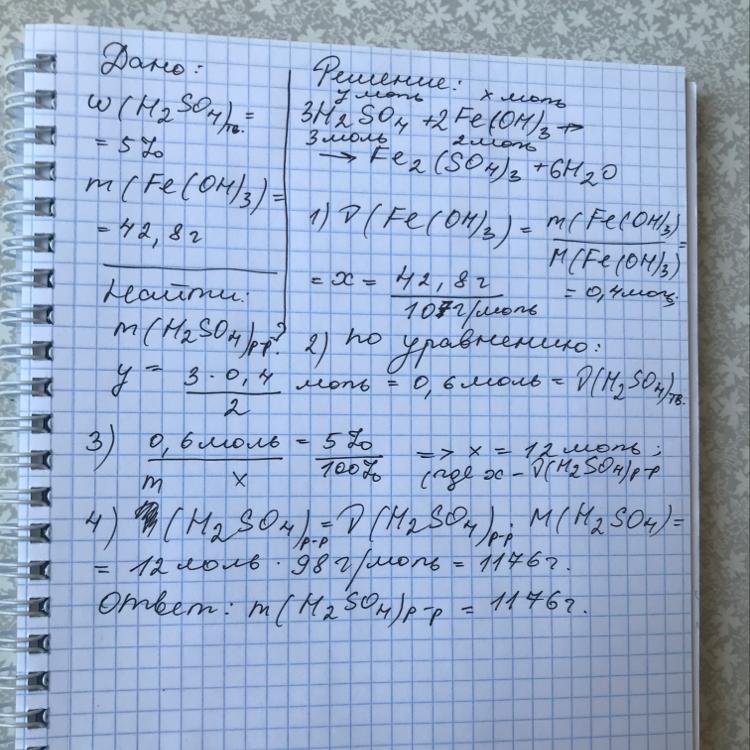 Дано:
ω(H₂SO₄)тв. =
= 5%
m(Fe(OH)₃) =
= 42,8г
Найти:
m(H₂SO₄)р-р?
Решение:
y моль x моль
3H₂SO₄ + 2Fe(OH)₃ →
3 моль 2 моль
→ Fe₂(SO₄)₃ + 6H₂O
1) ν(Fe(OH)₃) = m(Fe(OH)₃) / M(Fe(OH)₃) =
= x = 42,8г / 107г/моль = 0,4 моль;
2) по уравнению:
y = 3·0,4 / 2 моль = 0,6 моль = ν(H₂SO₄)тв.
3) 0,6 моль / x = 5% / 100% => x = 12 моль;
(где x – ν(H₂SO₄)р-р
4) m(H₂SO₄)р-р = ν(H₂SO₄)р-р · M(H₂SO₄) =
= 12 моль · 98 г/моль = 1176г.
Ответ: m(H₂SO₄)р-р = 1176г.